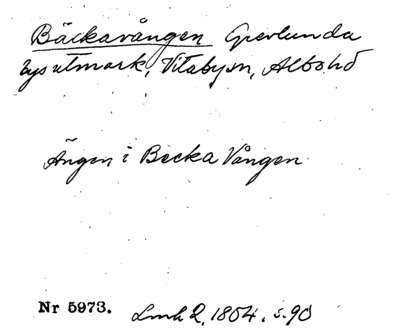 Bäckavången Grevlunda
bys utmark, Vitaby sn, Albo hd
Ängen i Becka Vången
Nr 5973. Lmh Q, 1804. s. 90